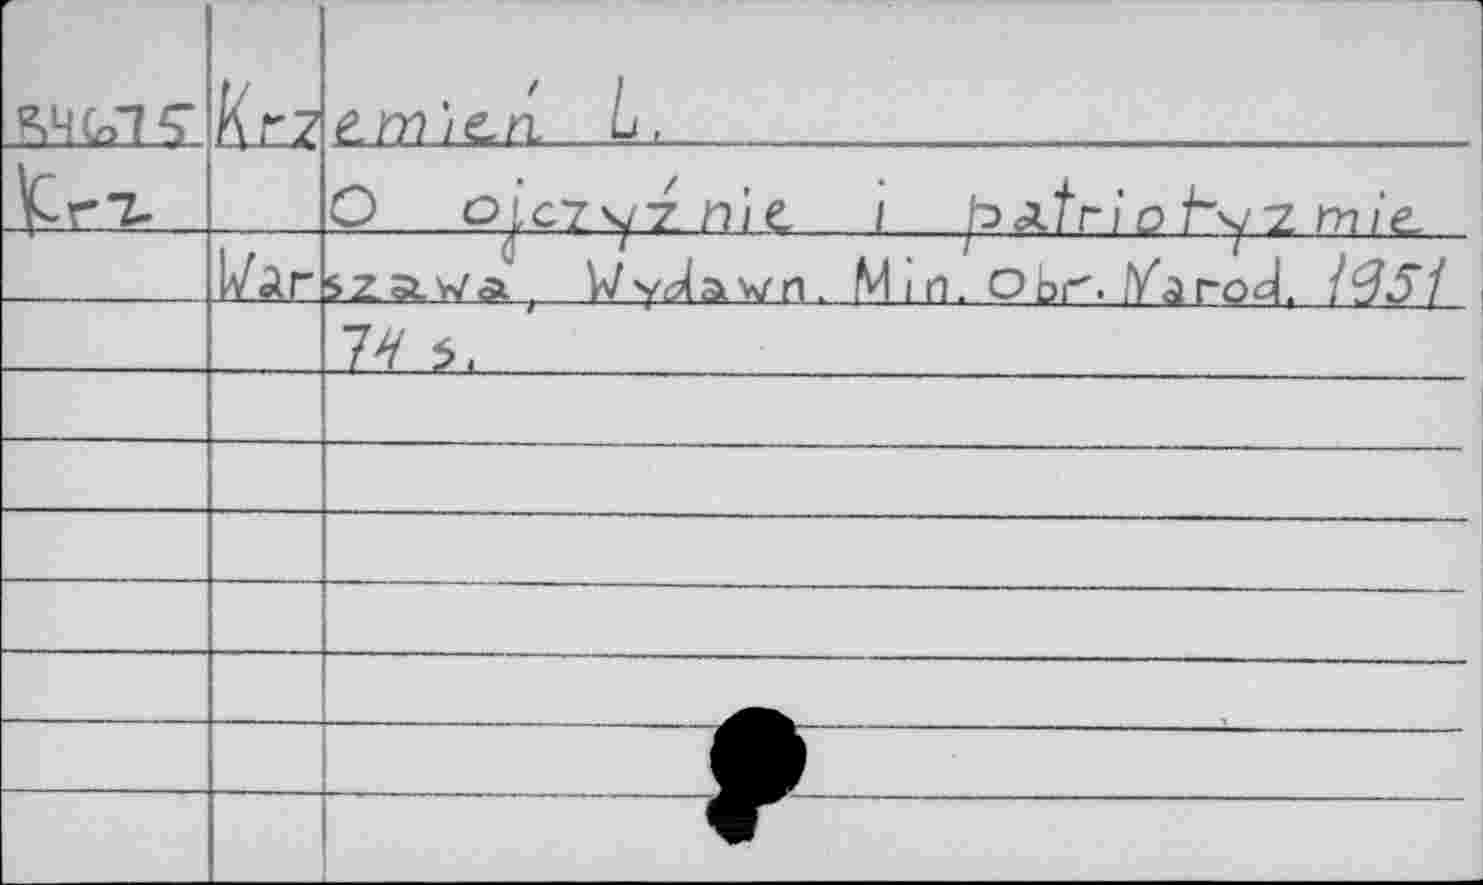 Krzemień L.
Krz O ojczyźnie i patriotyzmie
Warszawa, Wydawn. Min. Obr. Narod. 1951
74 s.